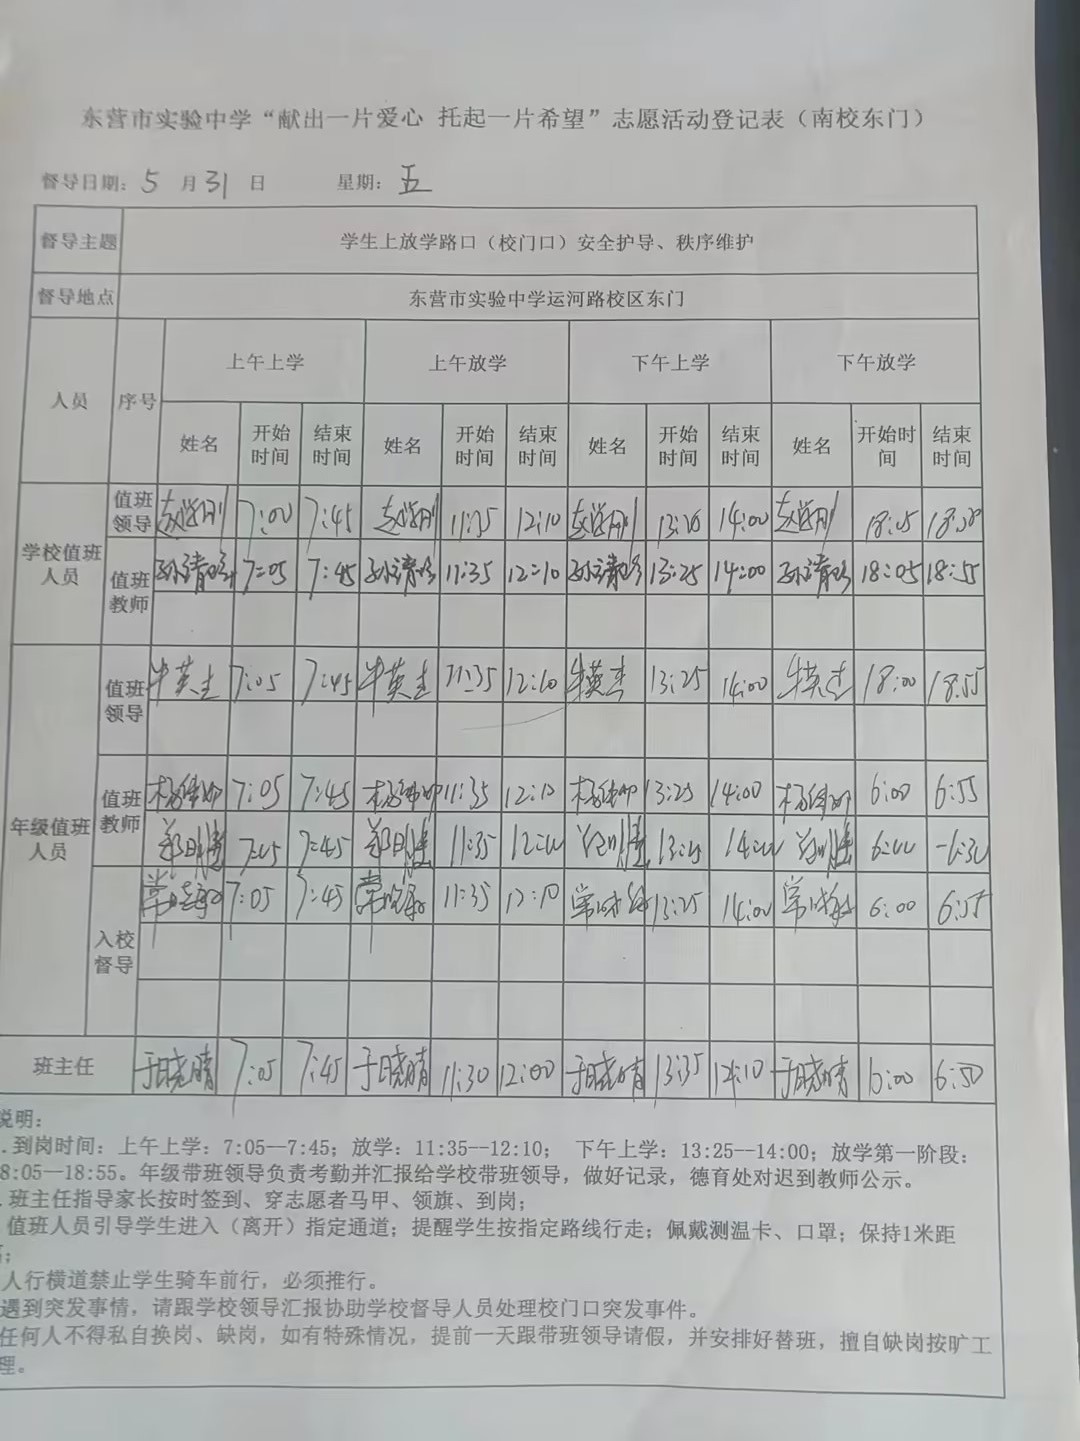 东营市实验中学“献出一片爱心 托起一片希望”志愿活动登记表（南校东门）
督导日期：5 月 31 日 星期：五
督导主题 学生上放学路口（校门口）安全护导、秩序维护
督导地点 东营市实验中学运河路校区东门
人员 序号 上午上学 上午放学 下午上学 下午放学
姓名 开始时间 结束时间 姓名 开始时间 结束时间 姓名 开始时间 结束时间 姓名 开始时间 结束时间
学校值班人员
值班领导 7:00 7:45 11:35 12:10 14:00 18:05
值班教师 7:05 7:45 11:35 12:10 13:25 14:00 18:05 18:55
年级值班人员
值班领导 牛英杰 7:05 7:45 牛英杰 11:35 12:10 牛英杰 13:25 14:00 牛英杰 18:00 18:55
值班教师 7:05 7:45 11:35 12:10 13:25 14:00 6:00 6:55
7:05 7:45 11:35
入校督导 7:05 7:45 11:35 12:10 13:25 14:00 6:00 6:55
班主任 于晓晴 7:05 7:45 于晓晴 11:30 12:00 于晓晴 13:35 于晓晴 6:00 6:50
说明：
.到岗时间：上午上学：7:05--7:45；放学：11:35--12:10； 下午上学：13:25--14:00；放学第一阶段：
8:05--18:55。年级带班领导负责考勤并汇报给学校带班领导，做好记录，德育处对迟到教师公示。
.班主任指导家长按时签到、穿志愿者马甲、领旗、到岗；
值班人员引导学生进入（离开）指定通道；提醒学生按指定路线行走；佩戴测温卡、口罩；保持1米距
离；
人行横道禁止学生骑车前行，必须推行。
遇到突发事情，请跟学校领导汇报协助学校督导人员处理校门口突发事件。
任何人不得私自换岗、缺岗，如有特殊情况，提前一天跟带班领导请假，并安排好替班，擅自缺岗按旷工
理。